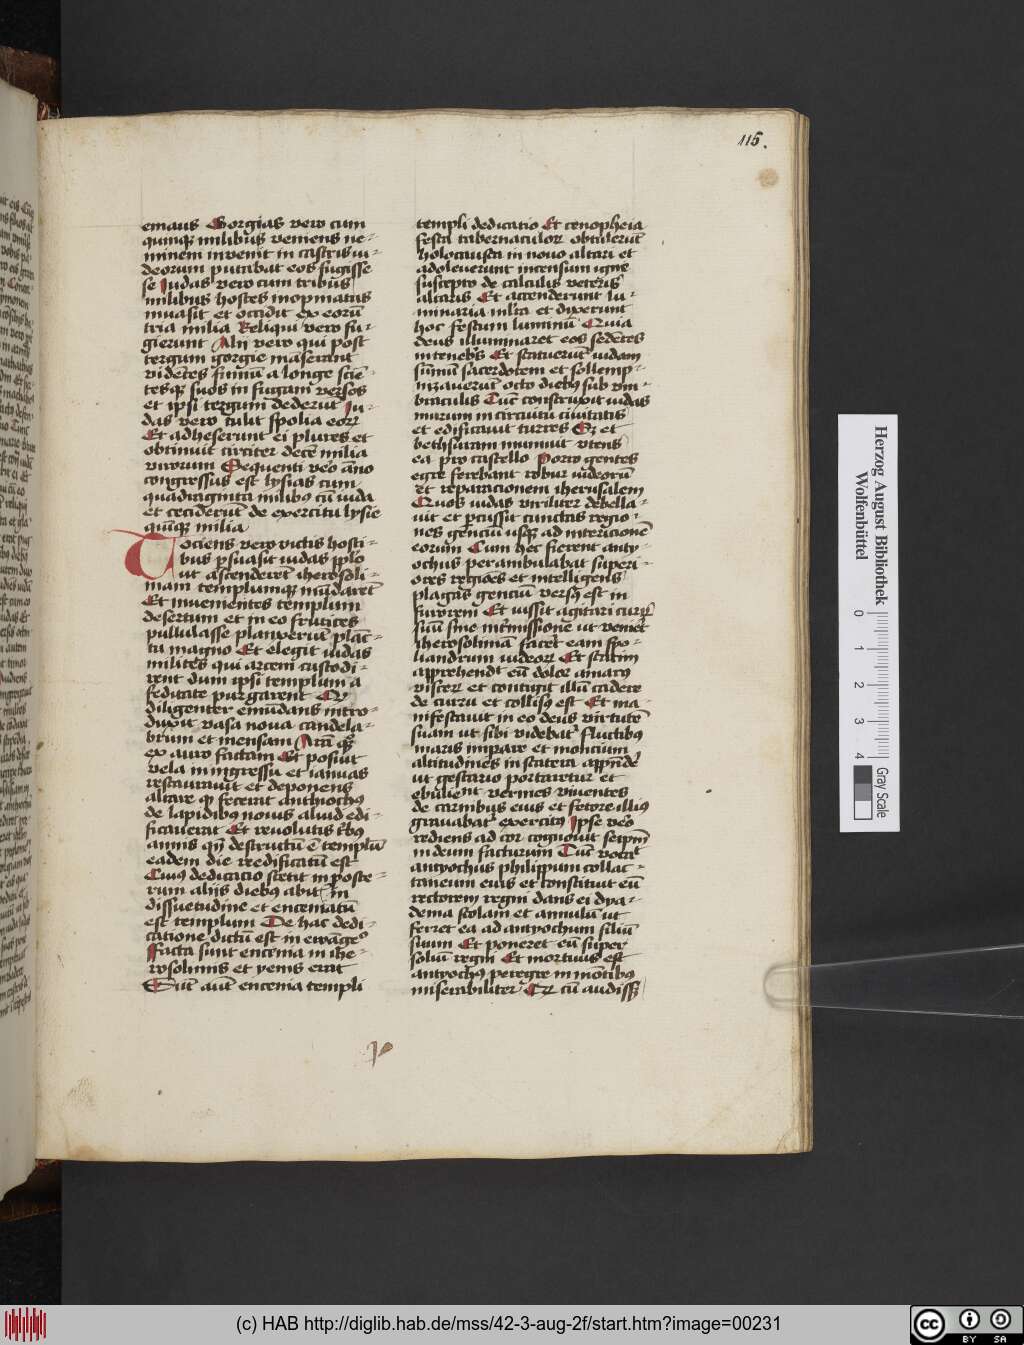 115.
emaus Gorgias vero cum
quinqꝫ milibus veniens ne⸗
minem invenit in castris iu⸗
deorum putabat eos fugisse
se Judas vero cum tribus
milibus hostes inopinatus
inuasit et occidit ex eorū
tria milia Reliqui vero fu⸗
gierunt Alij vero qui post
tergum gorgie māserant
vidētes fumū a longe sciē⸗
tesqꝫ suos in fugam versos
et ipsi tergum dederūt Ju⸗
das vero tulit spolia eoꝝ
Et adheserunt ei plures et
obtinuit circiter decē milia
virorum Sequenti v̄o āno
congressus est lysias cum
quadraginta milibꝰ cū iuda
et ceciderūt de exercitu lysie
quinqꝫ milia
Tociens vero victis hosti⸗
bus ꝑsuasit iudas pplo
ut ascenderēt iherosoli⸗
mam templumqꝫ mūdarēt
Et invenientes templum
desertum et in eo frutices
pullulasse planxerūt plāc⸗
tu magno Et elegit iudas
milites qui arcem custodi⸗
rent dum ipsi templum a
feditate purgarent Qui
diligenter emūdans intro⸗
duxit vasa nova candela⸗
brum et mensam Arā qꝫ
ex auro factam Et posuit
vela in ingressu et ianuas
restauravit et deponens
altare qđ fecerat anthiochus
de lapidibꝰ novis aliud edi⸗
ficaverat Et revolutis tribꝰ
annis qꝫ destructū ē templū
eadem die reedificatū est
Cuiꝰ dedicatio stetit in poste⸗
rum alijs diebꝰ abijt in
dissuetudine et enceniatū
est templum De hac dedi⸗
catione dictū est in ewāgeꝰ
Facta sunt encenia in ihe⸗
rosolimis et yems erat
Sūt aūt encenia templi
templi dedicatio Et cenopheia
festa tabernaculoꝝ obtulerūt
holocausta in novo altari et
adoleuerunt incensum igne
suscepto de calculis veteris
altaris Et accenderunt lu⸗
minaria mlta et dixerunt
hoc festum luminū Quia
deus illuminaret eos sedētes
in tenebris Et statuerūt iudam
sūmū sacerdotem et sollemp⸗
nizaverūt octo diebꝰ sub um⸗
braculis Tūc construxit iudas
murum in circuitu civitatis
et edificavit turres Sꝫ et
bethsuram munivit utens
ea pro castello Porro gentes
egre ferebant robur iudeorū
et reparacionem iherusalem
Quos iudas viriliter debella⸗
uit et ꝑcussit cunctas regio⸗
nes genciū usqꝫ ad intericionē
eorum Cum hec fierent anty⸗
ochus perambulabat superi⸗
ores regiōes et intelligens
plagas genciū versꝰ est in
furorem Et iussit agitari currū
suū sine intmissione ut veniēt
iherosolimā facēt eam spo⸗
liandrum iudeoꝝ Et statim
apprehendᵗ eū dolor amarꝰ
visceꝝ et contigit illū cadere
de curru et collisꝰ est Et ma⸗
nifestavit in eo deus virtutē
suam ut sibi videbat᷑ fluctibꝰ
maris impare et montium
altitudines in statera appndē
ut gestario portaretur et
ebulienᵗ vermes viventes
de carnibꝰ eius et fetore illiꝰ
gravabat᷑ exercitꝰ Ipse v̄o
rediens ad cor cognovit seipm̄
in deum facturum Tūc vocāt
antyochus philippum collac⸗
taneum eius et constituit eū
rectorem regni dans ei dya⸗
dema stolam et annulū ut
ferret ea ad antyochum filiū
suum Et poneret eū super
soliū regni Et mortuus est
antyochꝰ peregre in mōtibꝰ
miserabiliter Qꝫ cū audissꝫ
Herzog August Bibliothek
Wolfenbüttel
0 1 2 3 4
Gray Scale
(c) HAB http://diglib.hab.de/mss/42-3-aug-2f/start.htm?image=00231
cc BY SA